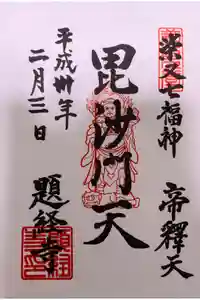 柴又七福神 帝釋天
毘沙門天
平成卅年
二月三日
題経寺